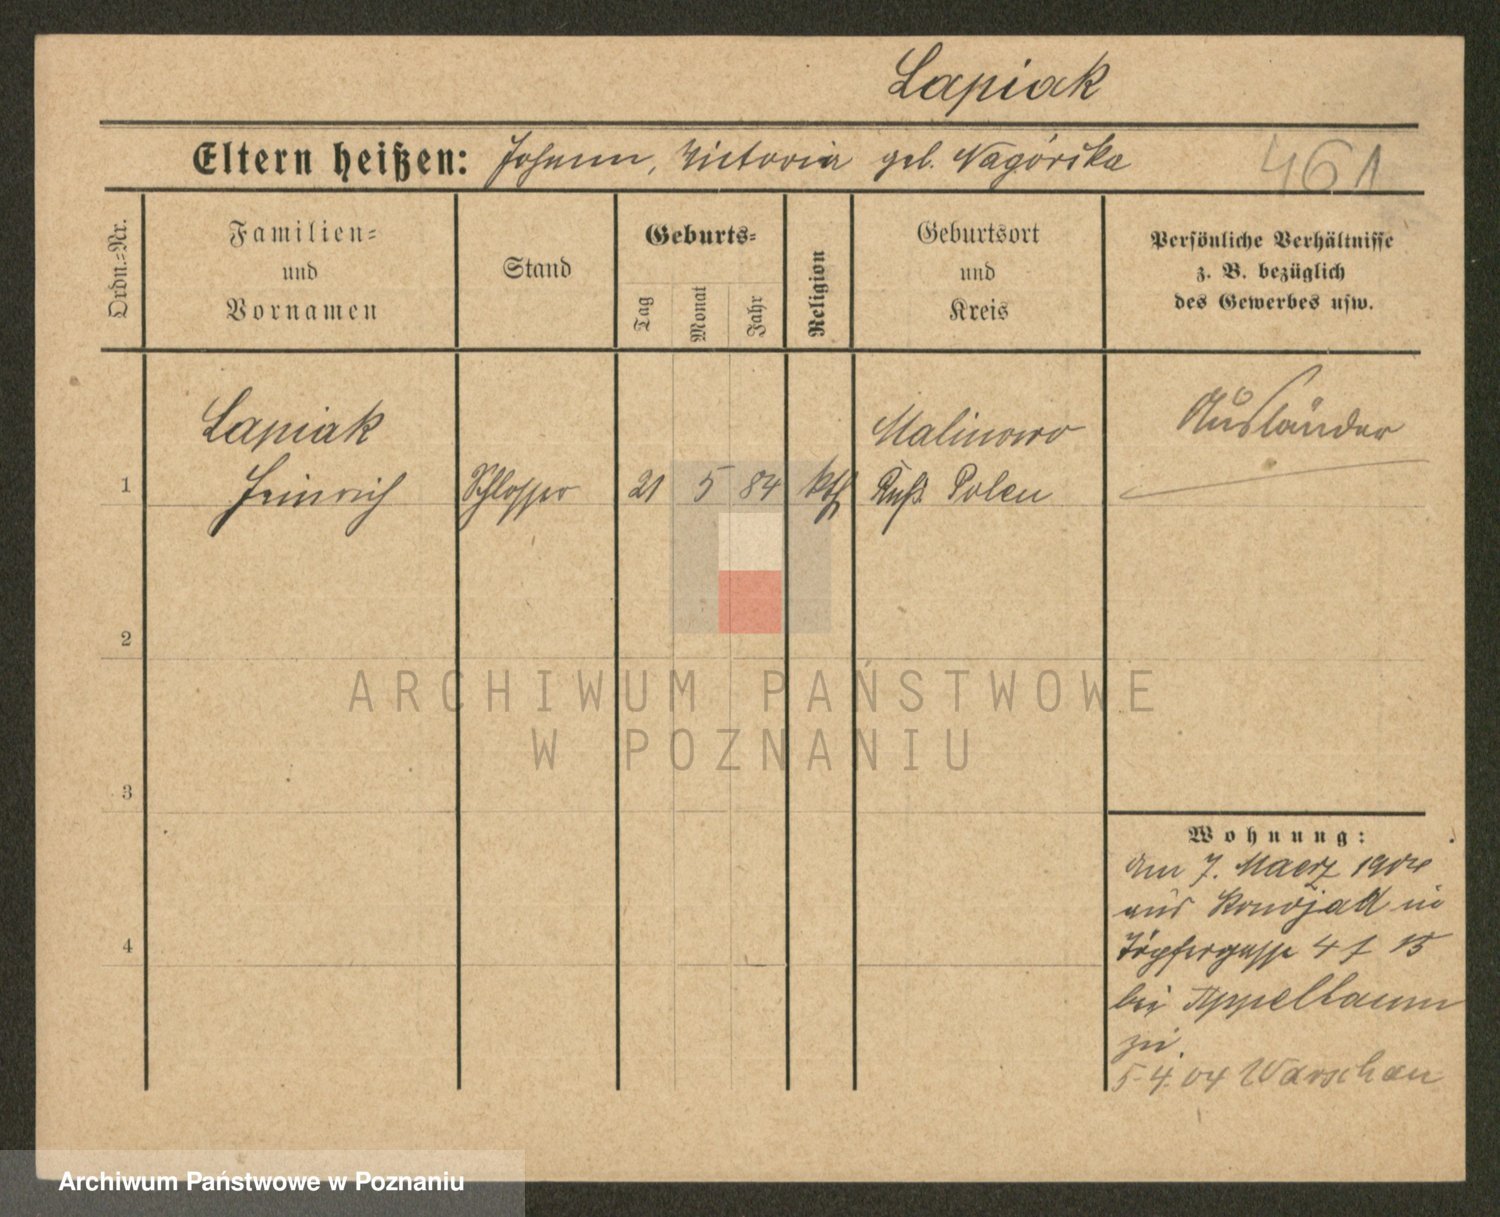 Lapiak
Eltern heißen: Johann, Victoria geb. Nagórska
461
Ordn.-Nr.
Familien-
und
Vornamen
Stand
Geburts-
Tag
Monat
Jahr
Religion
Geburtsort
und
Kreis
Persönliche Verhältnisse
z. B. bezüglich
des Gewerbes usw.
Lapiak
Malinowo
Ausländer
1 Heinrich Schlosser 21 5 84 kth Russ Polen
2
ARCHIWUM PAŃSTWOWE
W POZNANIU
3
Wohnung:
Am 7. Maerz 1904
aus in
4
Töpfergasse 4 15
bei Appelbaum
zu.
5.4.04 Warschau
Archiwum Państwowe w Poznaniu